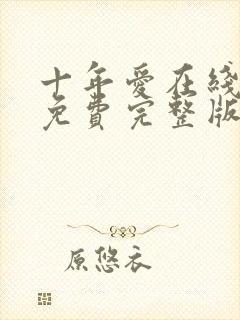 十年愛在綫
免費完整版
原悠衣